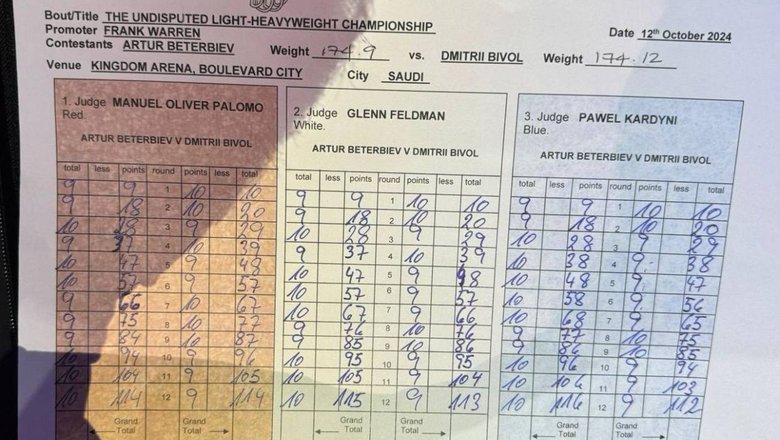 Bout/Title THE UNDISPUTED LIGHT-HEAVYWEIGHT CHAMPIONSHIP
Promoter FRANK WARREN Date 12th October 2024
Contestants ARTUR BETERBIEV Weight 174.9 vs. DMITRII BIVOL Weight 174.12
Venue KINGDOM ARENA, BOULEVARD CITY City SAUDI
1. Judge MANUEL OLIVER PALOMO
Red.
ARTUR BETERBIEV V DMITRII BIVOL
total less points round points less total
9 9 1 10 10
9 18 2 10 20
10 28 3 9 29
9 37 4 10 39
10 47 5 9 48
10 57 6 9 57
9 66 7 10 67
9 75 8 10 77
9 84 9 10 87
10 94 10 9 96
10 104 11 9 105
10 114 12 9 114
Grand Total Grand Total
2. Judge GLENN FELDMAN
White.
ARTUR BETERBIEV V DMITRII BIVOL
total less points round points less total
9 9 1 10 10
9 18 2 10 20
10 28 3 9 29
9 37 4 10 39
10 47 5 9 48
10 57 6 9 57
10 67 7 9 66
9 76 8 10 76
9 85 9 10 86
10 95 10 9 95
10 105 11 9 104
10 115 12 9 113
Grand Total Grand Total
3. Judge PAWEL KARDYNI
Blue.
ARTUR BETERBIEV V DMITRII BIVOL
total less points round points less total
9 9 1 10 10
9 18 2 10 20
10 28 3 9 29
10 38 4 9 38
10 48 5 9 47
10 58 6 9 56
10 68 7 9 65
9 77 8 10 75
9 86 9 10 85
10 96 10 9 94
10 106 11 9 103
10 116 12 9 112
Grand Total Grand Total